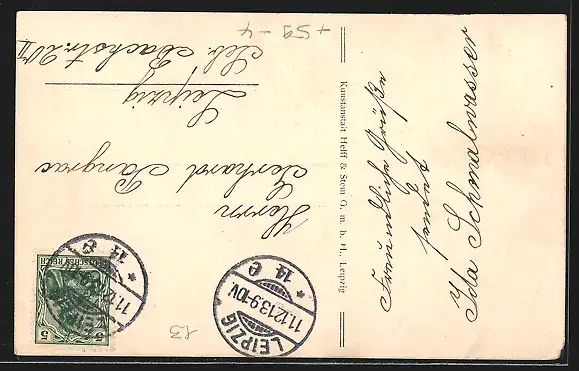 Freundliche Grüße
sendet
Ida Schmalwasser
Kunstanstalt Helff & Stein G. m. b. H., Leipzig
Herrn
Gerhard Pangras
Leipzig
Seb. Bachstr. 20 II
DEUTSCHES REICH
5
5
LEIPZIG
11.12.13.9-10V.
* 14 e
11.12
* 14 e
13
+ 59 - 4